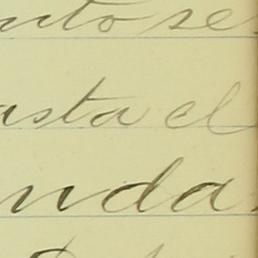 nto se
asta el
nda